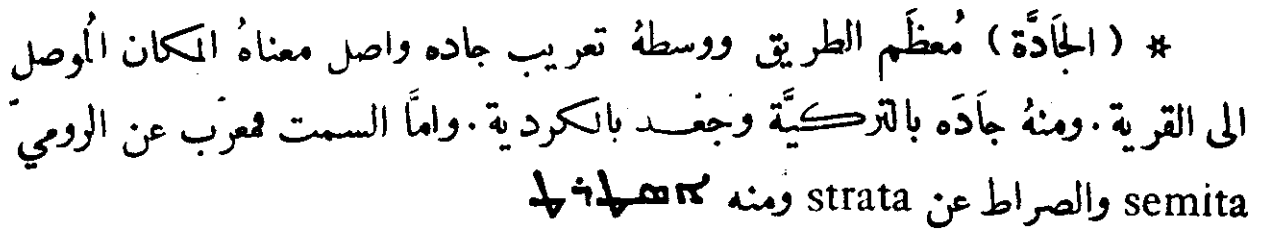 * ( الجَادَّة ) مُعظَم الطريق ووسطهُ تعريب جاده واصل معناهُ المكان المُوصل
الى القرية. ومنهُ جَادَه بالتركيَّة وجغد بالكردية. وامَّا السمت فمعرّب عن الروميّ
semita والصراط عن strata ومنه ܐܣܛܪܛ